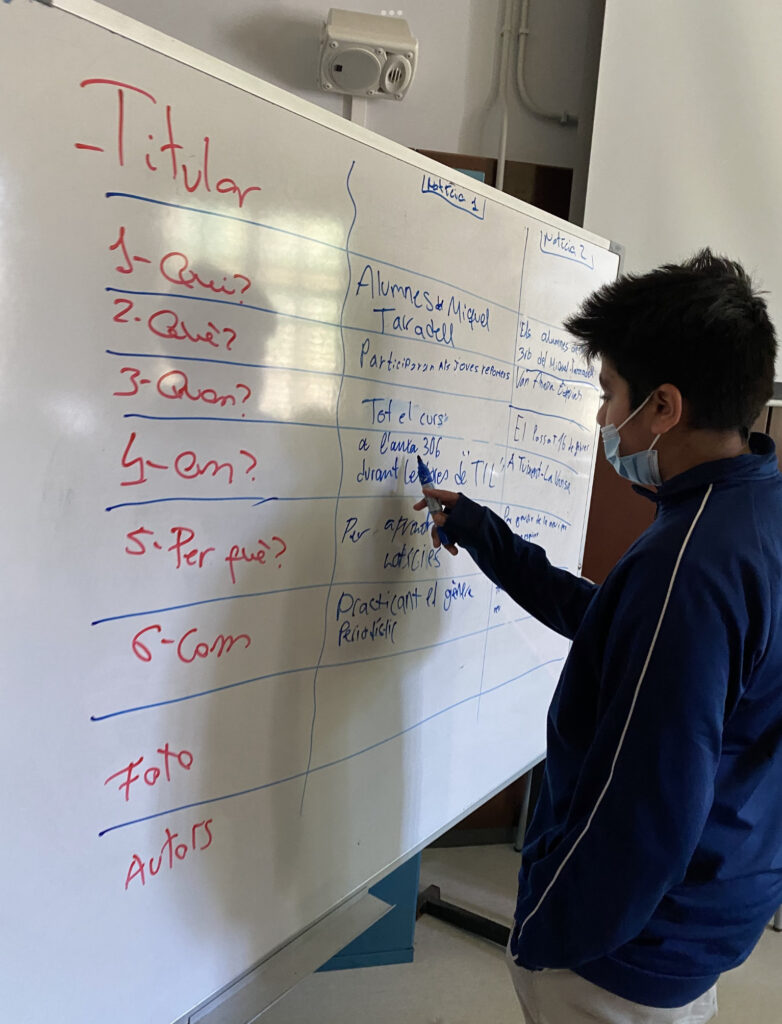 - Titular
1- Qui?
2- Què?
3- Quan?
4- On?
5- Per què?
6- Com
Foto
Autors
Notícia 1
Alumnes de Miquel
Tarradell
Participaran als joves reporters
Tot el curs
a l'aula 306
durant les hores de "TIL"
Per
notícies
Practicant el gènere
Periodístic
Notícia 2
Els alumnes de
3rb del Miquel Tarradell
Van
El Passat 16 de
A Tuixent-La Vansa
Per gaudir de la neu i per